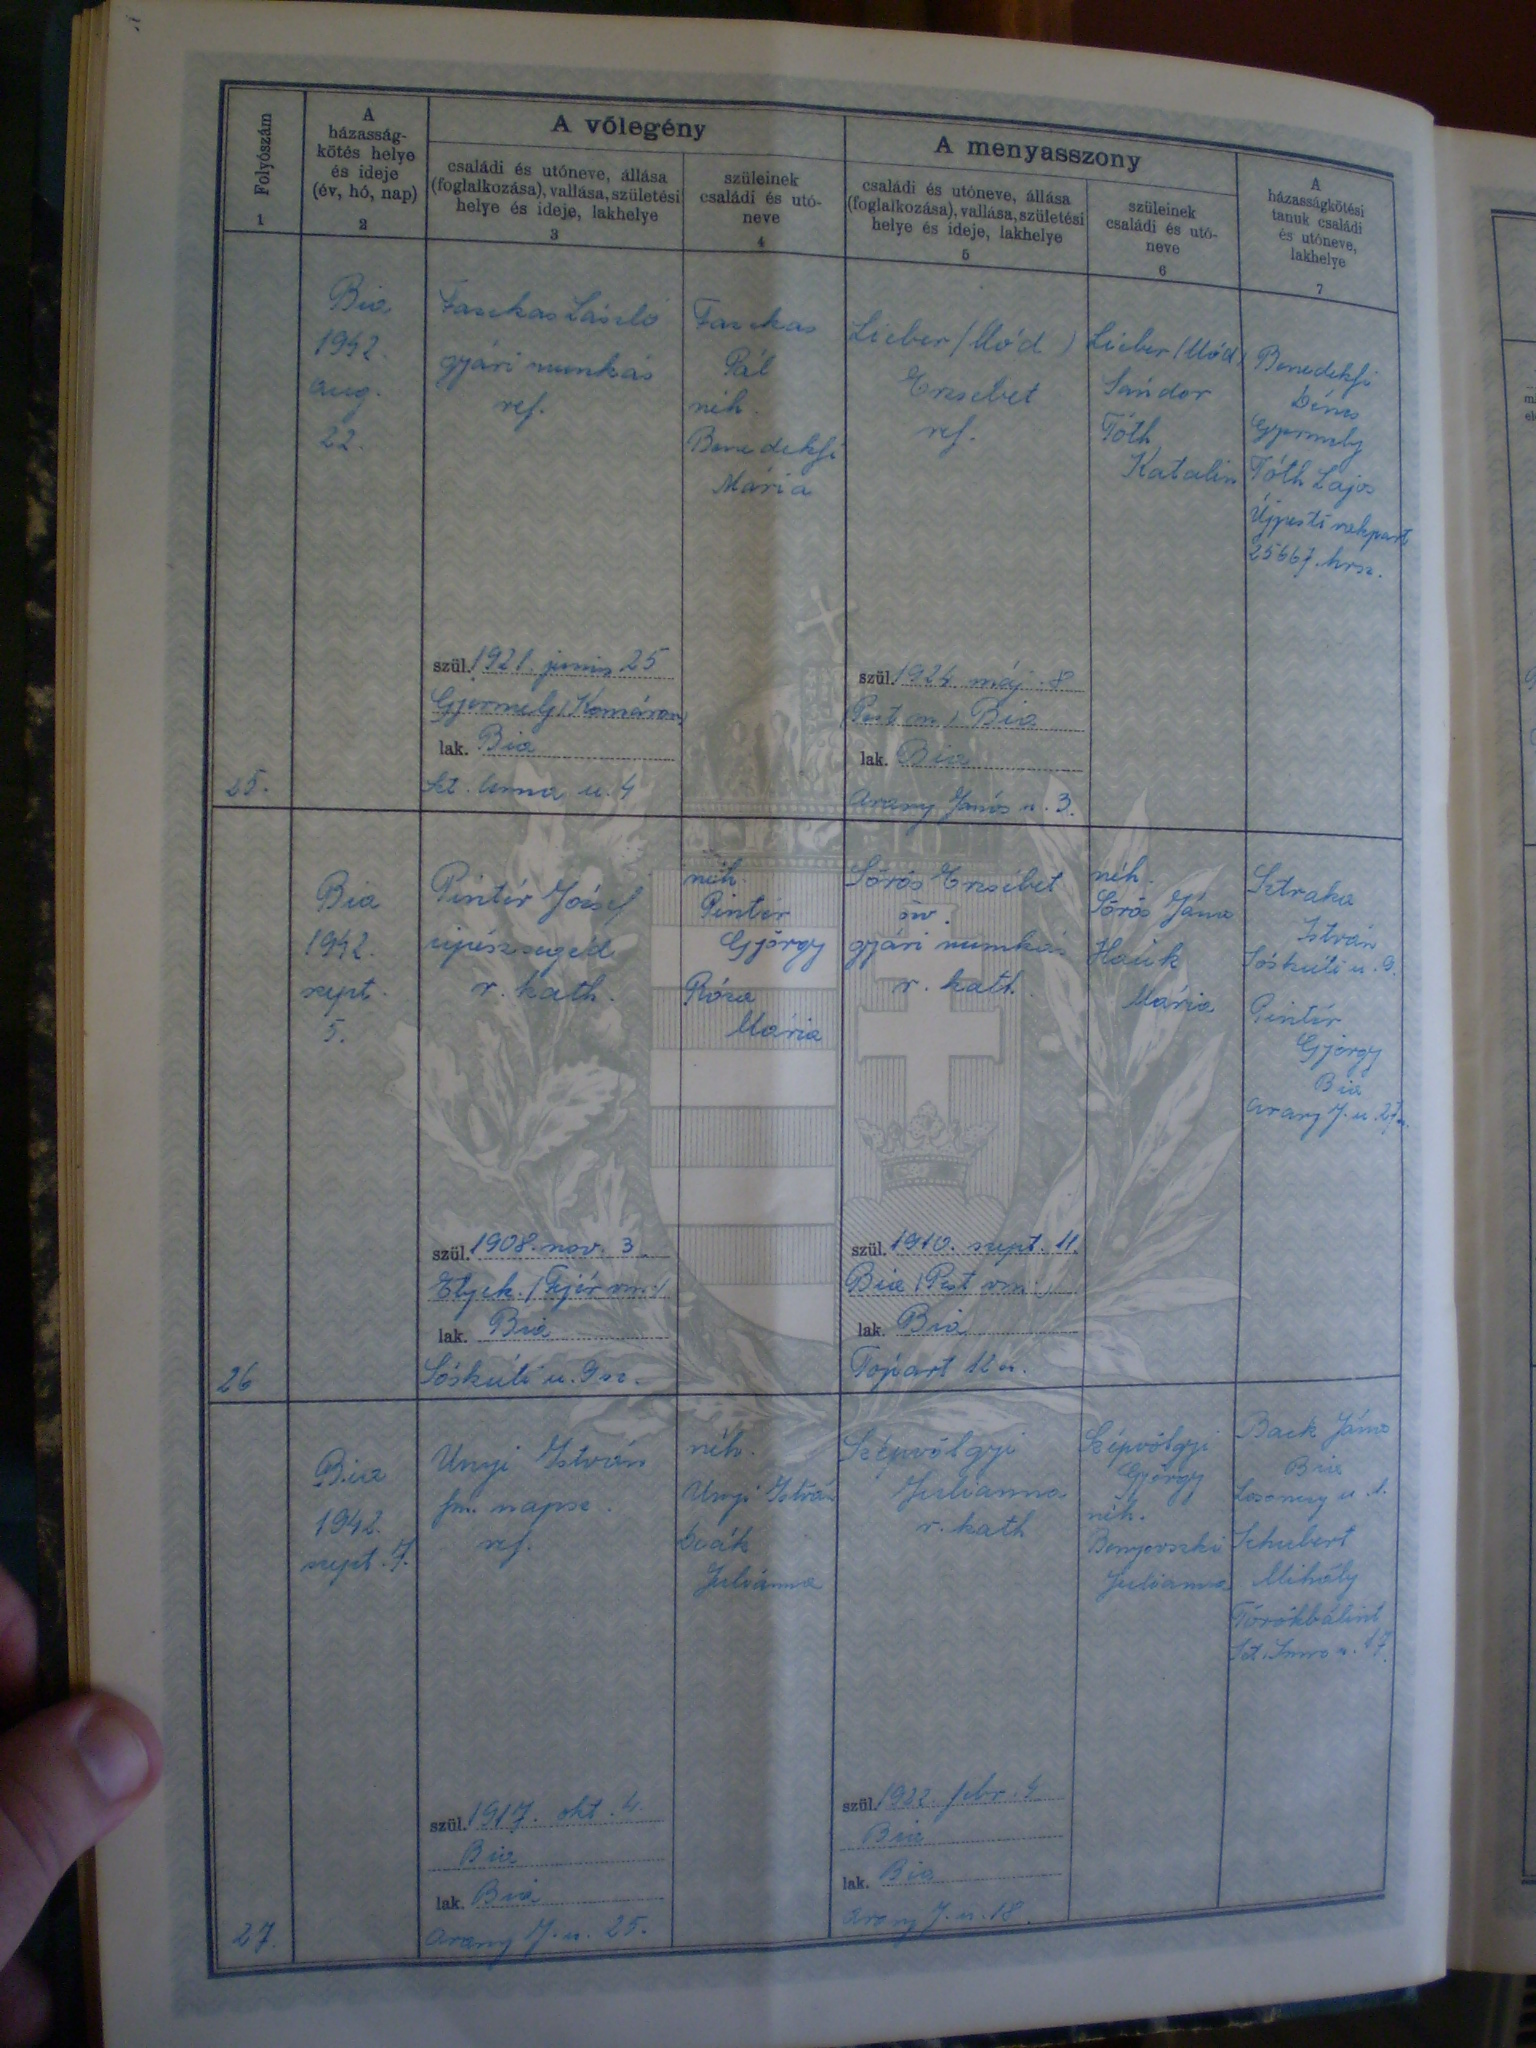 Folyószám
1
A
házasság-
kötés helye
és ideje
(év, hó, nap)
2
A vőlegény
családi és utóneve, állása
(foglalkozása), vallása, születési
helye és ideje, lakhelye
3
szüleinek
családi és utó-
neve
4
A menyasszony
családi és utóneve, állása
(foglalkozása), vallása, születési
helye és ideje, lakhelye
5
szüleinek
családi és utó-
neve
6
A
házasságkötési
tanuk családi
és utóneve,
lakhelye
7
25.
Bia
1942.
aug.
22.
Fazekas László
gyári munkás
ref.
szül. 1921. junius 25
Gyermely (Komárom)
lak. Bia
Szt. Anna u. 4
Fazekas
Pál
néh.
Benedekfi
Mária
Lieber (Mód)
Erzsébet
ref.
szül. 1924 máj. 8
(Pest m.) Bia
lak. Bia
Arany János u. 3.
Lieber (Mód)
Sándor
Tóth
Katalin
Benedekfi
Dénes
Gyermely
Tóth Lajos
Újpesti rakpart
25667. hrsz.
26
Bia
1942.
szept.
5.
Pintér József
cipészsegéd
r. kath.
szül. 1908. nov. 3.
Etyek. (Fejér vm.)
lak. Bia
Sóskúti u. 9 sz.
néh.
Pintér
György
Róza
Mária
Sörös Erzsébet
öv.
gyári munkás
r. kath.
szül. 1910. szept. 11.
Bia (Pest vm.)
lak. Bia
Tópart 12 sz.
néh.
Sörös János
Hauk
Mária
Sztraka
István
Sóskúti u. 9.
Pintér
György
Bia
Arany J. u. 27 sz.
27.
Bia
1942.
szept. 7.
Unyi István
fm. napsz.
ref.
szül. 1917. okt. 4.
Bia
lak. Bia
Arany J. u. 25.
néh.
Unyi István
Deák
Juliánna
Szépvölgyi
Julianna
r. kath
szül. 1922. febr. 4
Bia
lak. Bia
Arany J. u. 18.
Szépvölgyi
György
néh.
Benyovszki
Julianna
Back János
Bia
Losonczy u. 1.
Schubert
Mihály
Törökbálint
Szt. Imre u. 17.